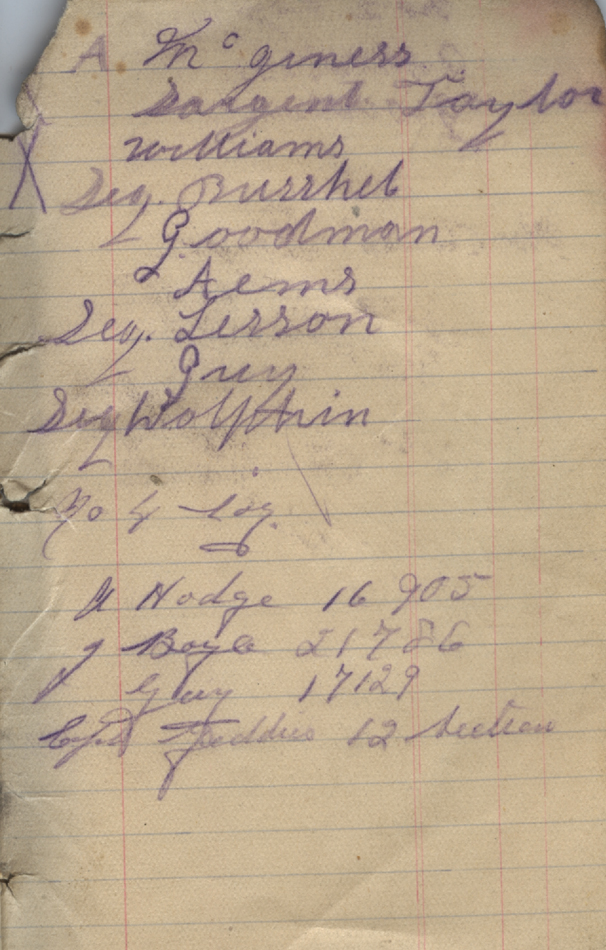 A McGiness
Sargent Taylor
Williams
Seg. Burrheb
Goodman
Aems
Seg. Lesson
Guy
Seg Wolfhin
No 4
Hodge 16905
J Boyle 21786
J Guy 17129
12 Section